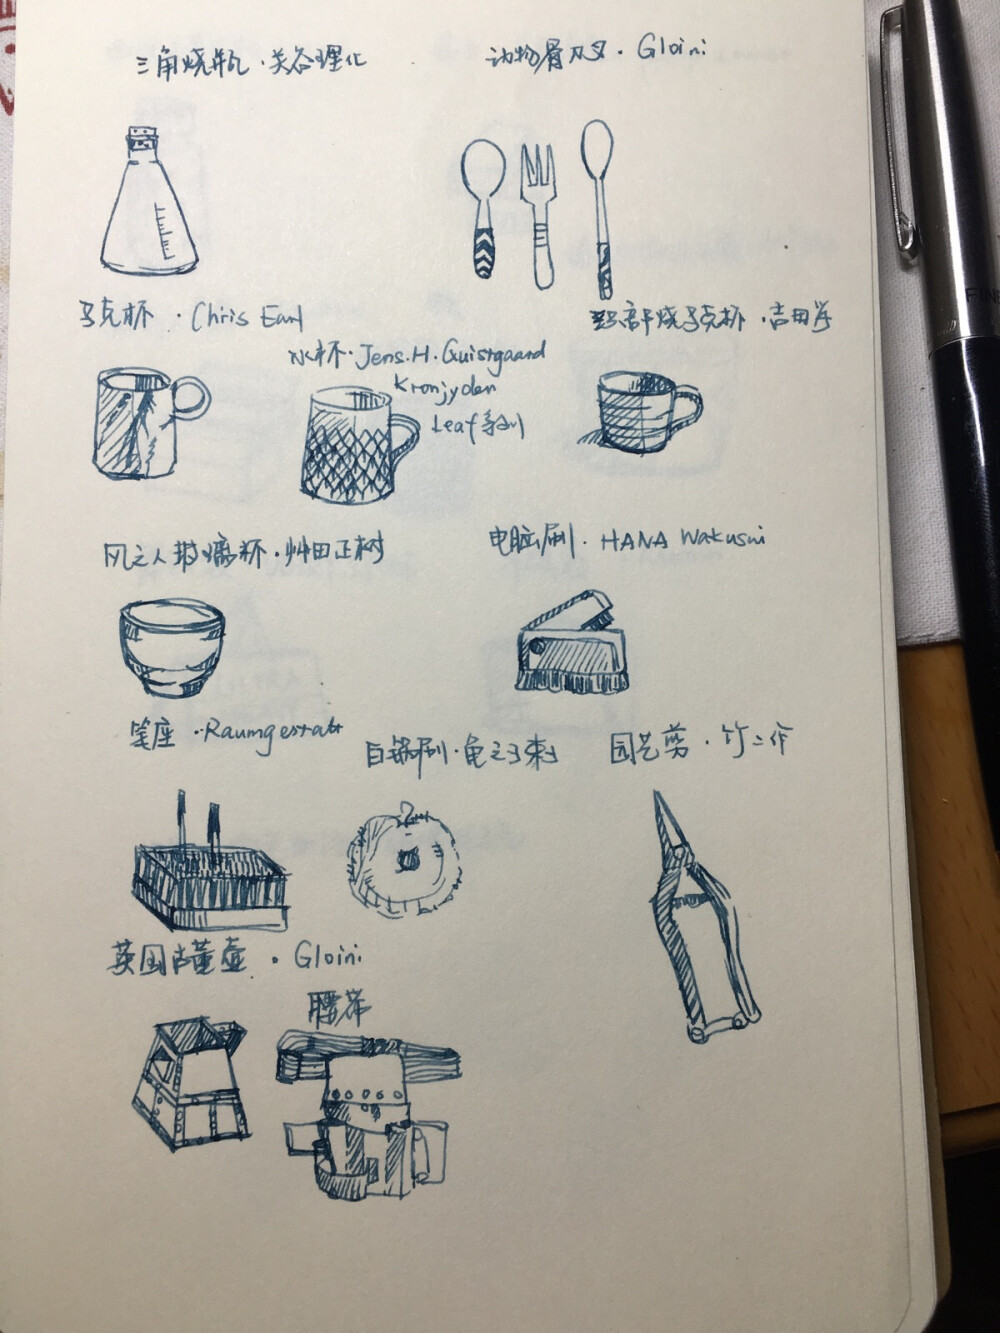 三角烧瓶·关谷理化
动物骨刀叉·Gloini
马克杯·Chris Earl
水杯·Jens.H.Quistgaard
Kronjyden
Leaf系列
干烧马克杯·吉田学
风之人玻璃杯·艸田正树
电脑刷·HANA Wakusui
笔座·Raumgestalt
白锅刷·龟之子束子
园艺剪·竹二作
英国古董壶·Gloini
腰带